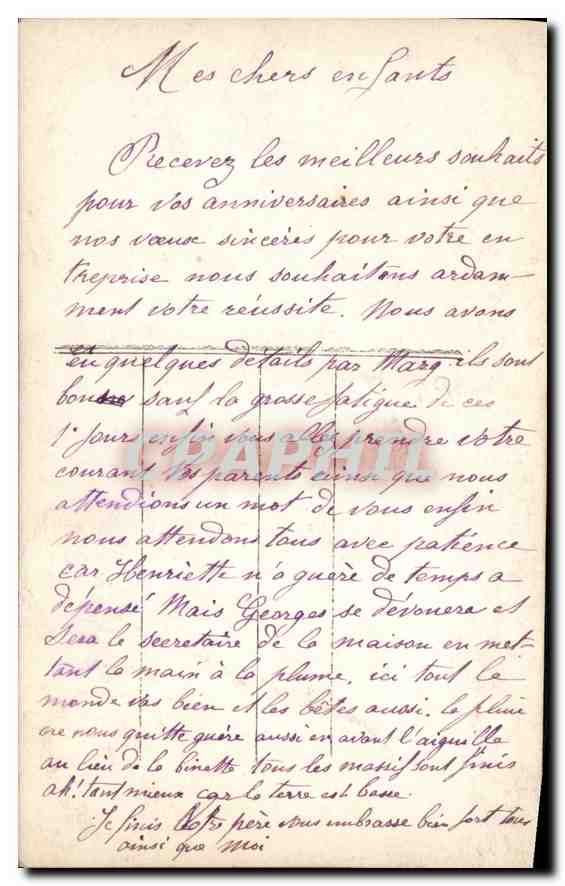 Mes chers enfants
Recevez les meilleurs souhaits
pour vos anniversaires ainsi que
nos vœux sincères pour votre en
treprise nous souhaitons ardam-
ment votre réussite. Nous avons
eu quelques détails par Marg. ils sont
bons sauf la grosse fatigue de ces
1ers jours enfin vous allez prendre votre
courant vos parents ainsi que nous
attendions un mot de vous enfin
nous attendons tous avec patience
car Henriette n'a guère de temps a
dépensé Mais Georges se dévouera et
sera le secretaire de la maison en met-
tant la main à la plume. ici tout le
monde vas bien et les bêtes aussi. la pluie
ne nous quitte guère aussi en avant l'aiguille
au lieu de la binette tous les massif sont finis
ah! tant mieux car la terre est basse.
Je finis Votre père vous embrasse bien fort tous
ainsi que moi
CPAPHIL